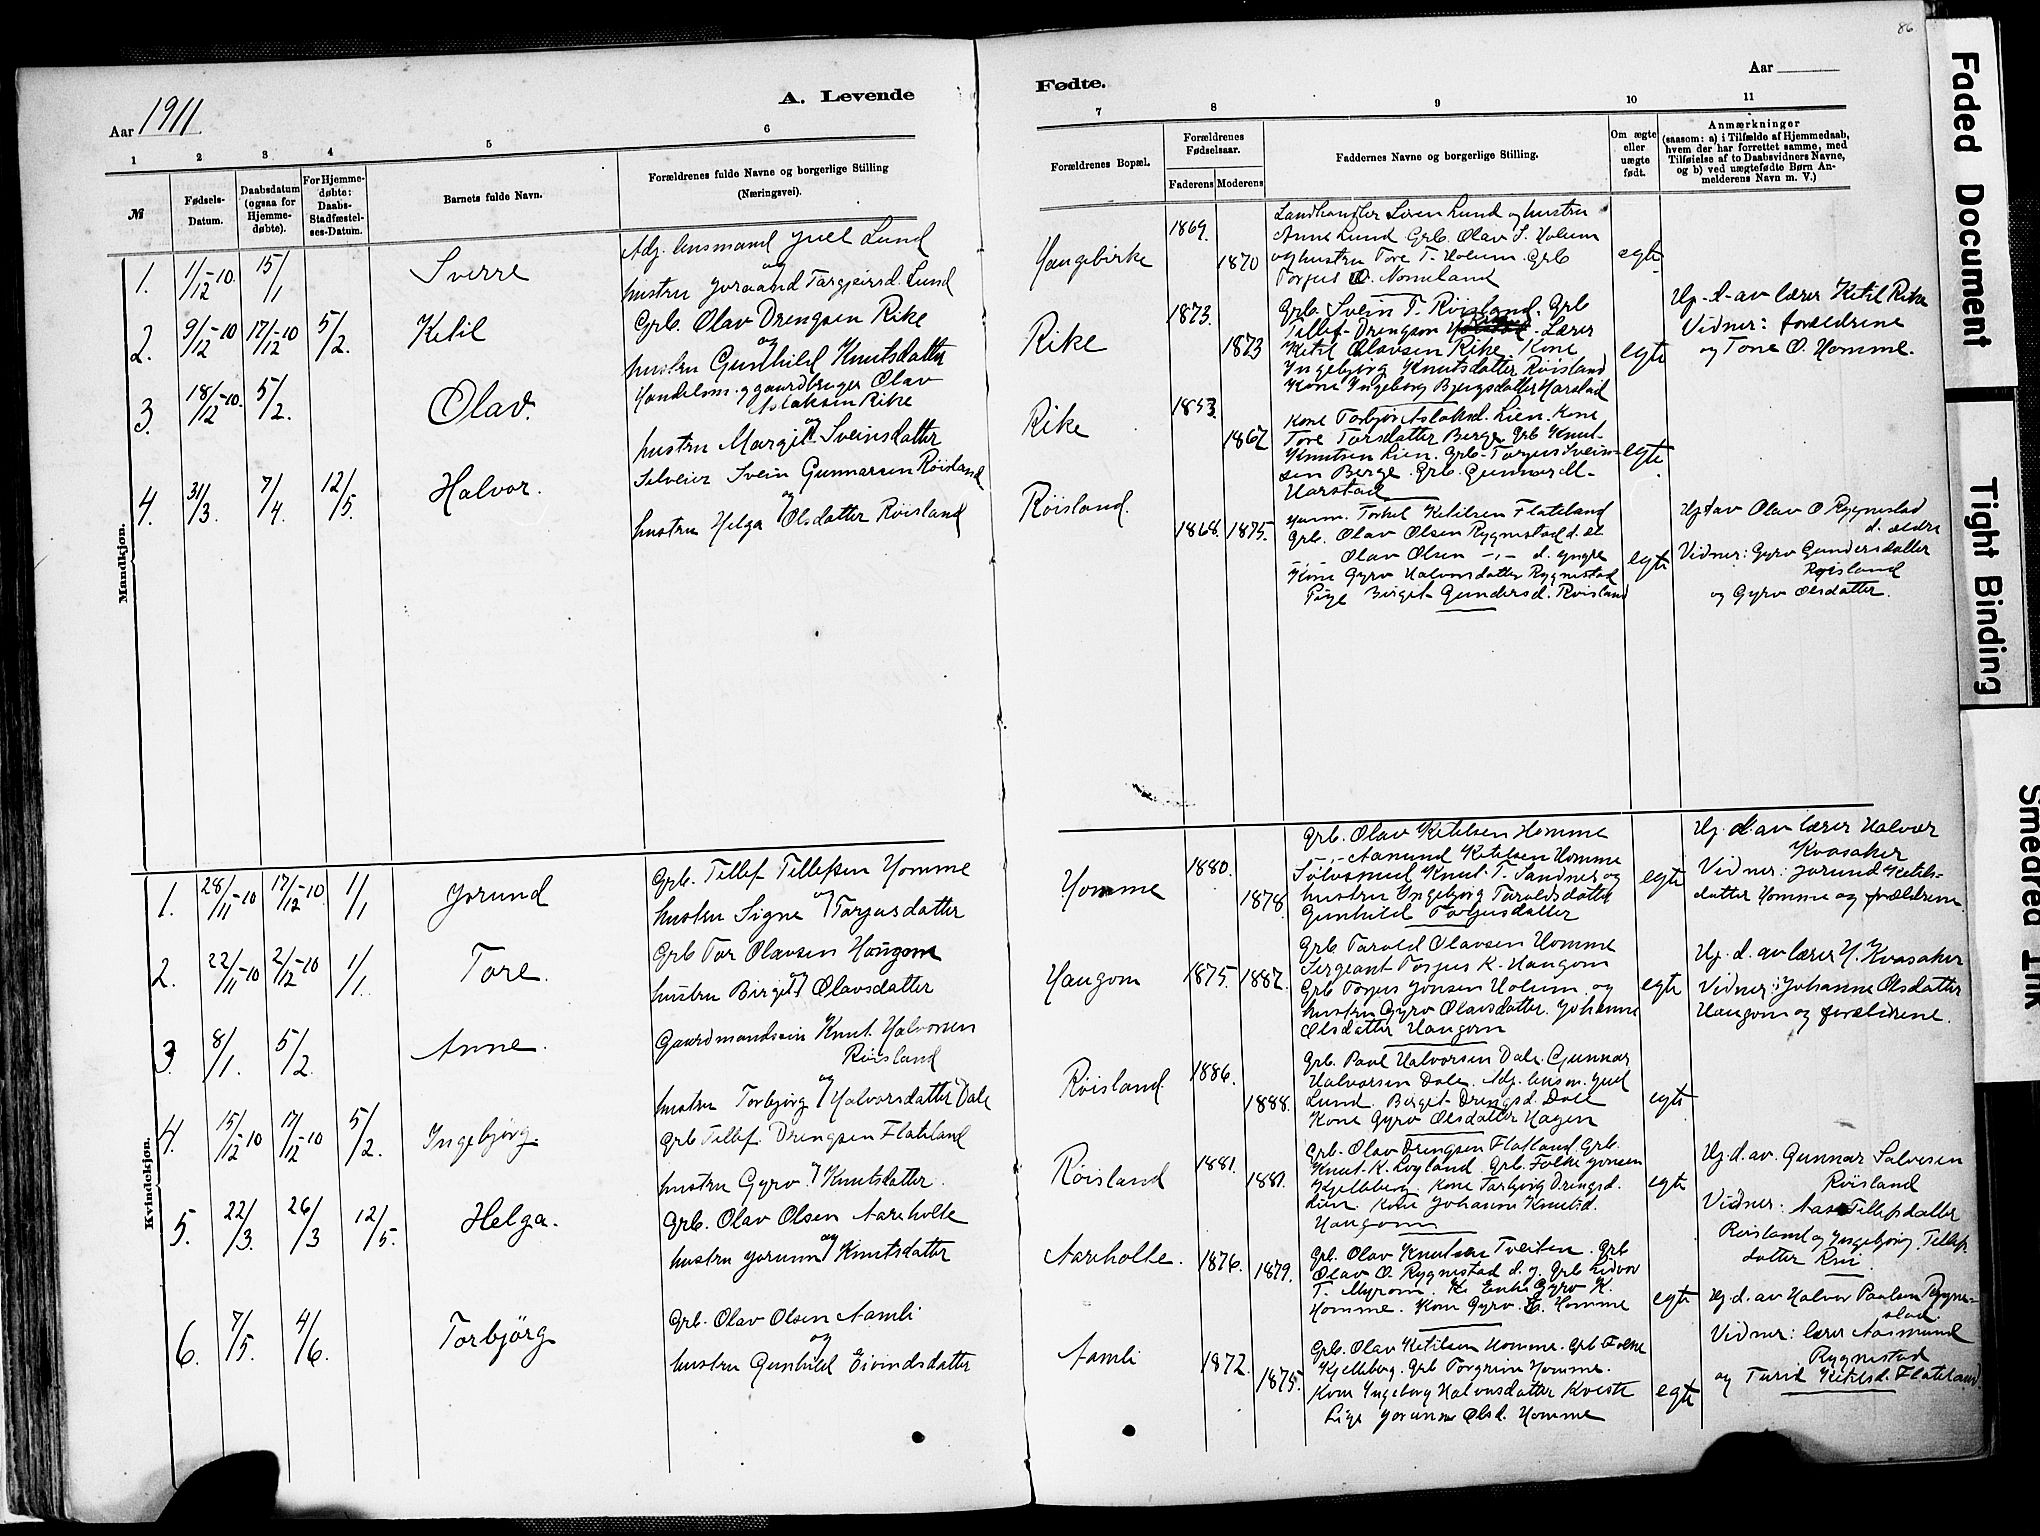 86
Aar 1911
A. Levende
Fødte.
Aar
1 2 3 4 5 6 7 8 9 10 11
№
Fødsels-
Datum.
Daabsdatum
(ogsaa for
Hjemme-
døbte).
For Hjemme-
døbte:
Daabs-
Stadfæstel-
ses-Datum.
Barnets fulde Navn.
Forældrenes fulde Navne og borgerlige Stilling
(Næringsvei).
Forældrenes Bopæl.
Forældrenes
Fødselsaar.
Faderens Moderens
Faddernes Navne og borgerlige Stilling.
Om ægte
eller
uægte
født.
Anmærkninger
(saasom: a) i Tilfælde af Hjemmedaab,
hvem der har forrettet samme, med
Tilføielse af to Daabsvidners Navne,
og b) ved uægtefødte Børn An-
melderens Navn m. V.)
Mandkjøn.
1. 1/12-10 15/1 Sverre
Adj. lensmand Juel Lund
og
hustru Joraand Targjeirsd. Lund
Haugebirke 1869. 1870
Landhandler Søren Lund og hustru
Anne Lund Grb. Olav S. Holum
og hustru Tore T. Holum. Grb
Torjus O. Nomeland
egte
2. 9/12-10 17/12-10 5/2. Ketil
Grb. Olav Drengsen Rike
og
hustru Gunhild Knutsdatter
Rike 1873. 1873
Grb. Svein T. Røisland. Grb
Tillef Drengson Lærer
Ketil Olavsen Rike. Kone
Ingebjørg Knutsdatter Røisland
Kone Ingeborg Bjugsdatter Harstad
egte
Hj.-d-av lærer Ketil Rike
Vidner: forældrene
og Tone O. Homme.
3. 18/12-10. 5/2. Olav.
Handelsm. og gaardbruger Olav
Aslaksen Rike
og
hustru Margit Sveinsdatter
Rike 1853. 1862
Kone Torbjør Aslaksd. Lien. Kone
Tore Tarsdatter Berge Grb Knut
Knutsen Lien. Grb. Torjus Svein-
sen Berge. Grb. Gunnar M.
Harstad
egte.
4. 31/3. 7/4. 12/5. Halvor.
Selveier Svein Gunnarsen Røisland
og
hustru Helga Olsdatter Røisland
Røisland. 1868. 1875.
Torkel Ketilsen Flateland
Grb. Olav Olsen Rygnestad d. el
Olav Olsen -,- d. yngre
Kone Gyro Halvorsdatter Rygnestad
Pige Birget Gundersd. Røisland
egte
Hjd av Olav O Rygnestad
d. ældre
Vidner: Gyro Gundersdatter
Røisland
og Gyro Olsdatter.
Kvindekjøn.
1. 28/11-10 17/12-10 1/1 Jorund
Grb. Tillef Tillefsen Homme
og
hustru Signe Torjusdatter
Homme 1880. 1878
Grb. Olav Ketilsen Homme
-,- Aamund Ketilsen Homme
Sølvsmed Knut T. Sandnes og
hustru Ingebjørg Taraldsdatter
Gunhild Torjusdatter
egte
Hj. d. av lærer Halvor
Kvasaker
Vidner: Jorund Ketils-
datter Homme og forældrene
2. 22/11-10 2/12-10 1/1. Tore.
Grb Tor Olavsen Haugom
og
hustru Birget Olavsdatter
Haugom 1875. 1882.
Grb Tarald Olavsen Homme
Sergeant Torjus K. Haugom
Grb Torjus Jonsen Holum og
hustru Gyro Olavsdatter. Johanne
Olsdatter Haugom
egte
Hj. d. av lærer H. Kvasaker
Vidner: Johanne Olsdatter
Haugom og forældrene.
3. 8/1. 5/2. Anne.
Gaardmandssøn Knut Halvorsen
Røisland
og
hustru Torbjørg Halvorsdatter Dale
Røisland. 1886. 1888.
Grb. Paul Halvorsen Dale. Gunnar
Halvorsen Dale. Adj. lensm. Juel
Lund. Berget Drengsd. Dale
Kone Gyro Olsdatter Hagen
egte
4. 15/12-10 17/12-10 5/2. Ingebjørg
Grb Tillef Drengsen Flateland
og
hustru Gyro Knutsdatter.
Røisland 1881. 1881.
Grb. Olav Drengsen Flatland. Grb.
Knut K. Løyland. Grb. Folke Jonsen
Kjelleberg. Kone Tarbjørg Drengsd.
Lien. Kone Johanne Knutsd.
Haugom
egte
Hj. d. av. Gunnar Salvesen
Røisland
Vidner: Aase Tillefsdatter
Røisland og Ingebjørg Tillefs
datter Rui.
5. 22/3. 26/3 12/5. Helga.
Grb. Olav Olsen Aareholte
og
hustru Jorunn Knutsdatter
Aareholte. 1876. 1879.
Grb. Olav Knutson Tveiten. Grb
Olav O. Rygnestad d. y. Grb Lidvor
T. Myrom. K. Enke Gyro K.
Homme. Kone Gyro Homme
egte
Hj. d. av Halvor Paulsen Rygne-
stad.
Vidner: lærer Aasmund
Rygnestad
og Turid Ketilsd. Flateland.
6. 7/5. 4/6. Torbjörg
Grb. Olav Olsen Aamli
og
hustru Gunhild Eivindsdatter
Aamli 1872. 1875.
Grb. Olav Ketilsen Homme. Grb Folke
Kjelleberg. Grb Torgrim Homme.
Kone Ingeborg Halvorsdatter Kveste
Pige Jorunn Olsd. Homme
egte
Faded Document
Tight Binding
Smeared Ink